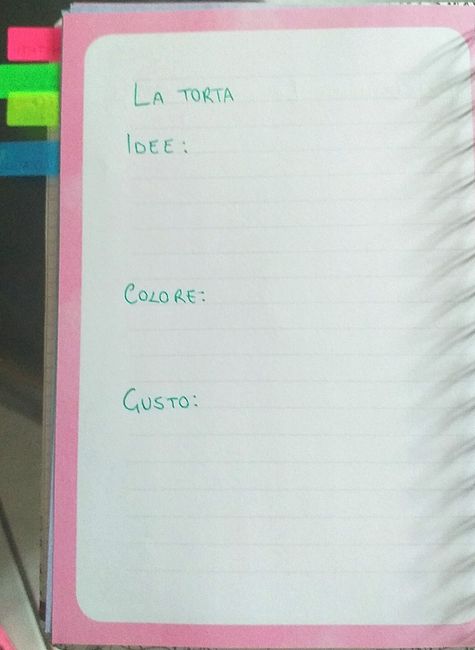 LA TORTA
IDEE:
COLORE:
GUSTO: